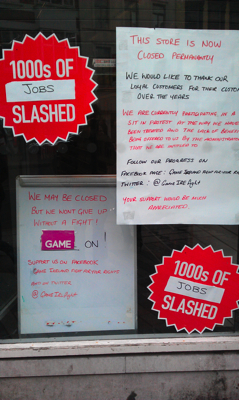 1000s OF
JOBS
SLASHED
THIS STORE IS NOW
CLOSED PERMANENTLY
WE WOULD LIKE TO THANK OUR
LOYAL CUSTOMERS FOR THEIR CUSTOM
OVER THE YEARS
WE ARE CURRENTLY PARTICIPATING IN A
SIT IN PROTEST AT THE WAY WE HAVE
BEEN TREATED AND THE LACK OF
BEING OFFERED TO US BY THE ADMINISTRATORS
THAT WE ARE ENTITLED TO
FOLLOW OUR PROGRESS ON
FACEBOOK PAGE: GAME IRELAND FIGHT FOR YOUR RIGHTS
TWITTER: @ Game IRE Fight
YOUR SUPPORT WOULD BE MUCH
APPRECIATED.
WE MAY BE CLOSED
BUT WE WONT GIVE UP
WITHOUT A FIGHT!
GAME ON!
SUPPORT US ON FACEBOOK
GAME IRELAND FIGHT FOR YOUR RIGHTS
AND ON TWITTER
@ Game IRE Fight
1000s OF
JOBS
SLASHED